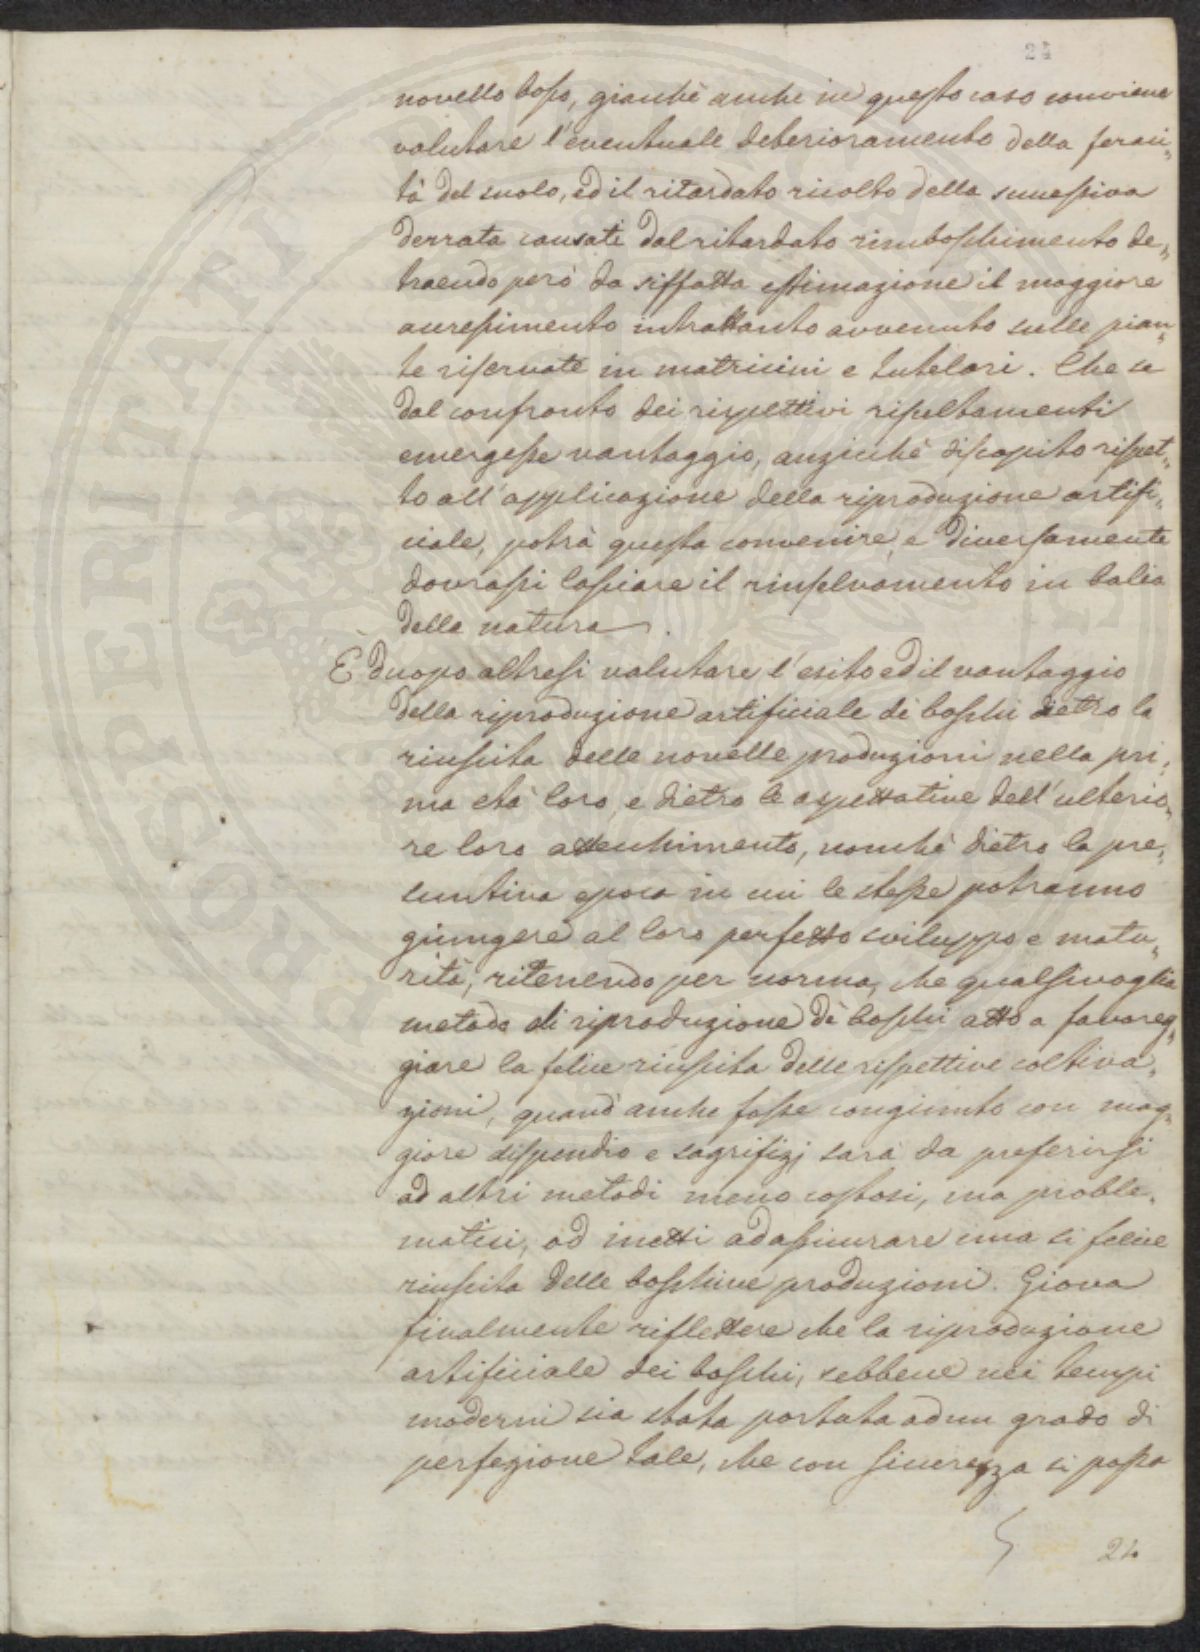 24
novello bosco, giacchè anche in questo caso conviene
valutare l'eventuale deterioramento della feraci„
tà del suolo, ed il ritardato ricolto della successiva
derrata causati dal ritardato rimboschimento de„
traendo però da siffatta estimazione il maggiore
accrescimento intrattanto avvenuto sulle pian„
te riservate in matricini e tutelari. Che se
dal confronto dei rispettivi risultamenti
emergesse vantaggio, anzicchè discapito rispet„
to all'applicazione della riproduzione artifi„
ciale, potrà questa convenire, e diversamente
dovrassi lasciare il rinselvamento in balia
della natura.
È duopo altresì valutare l'esito ed il vantaggio
della riproduzione artificiale dè boschi dietro la
riuscita delle novelle produzioni nella pri„
ma età loro, e dietro le aspettative dell'ulterio„
re loro attecchimento, nonchè dietro la pre„
suntiva epoca in cui le stesse potranno
giungere al loro perfetto sviluppo e matu„
rità, ritenendo per norma, che qualsivoglia
metodo di riproduzione dè boschi atto a favoreg„
giare la felice riuscita delle rispettive coltiva„
zioni, quand'anche fosse congiunto con mag„
giore dispendio e sagrifizj sarà da preferirsi
ad altri metodi meno costosi, ma proble„
matici, od inetti ad assicurare una sì felice
riuscita delle boschive produzioni. Giova
finalmente riflettere che la riproduzione
artificiale dei boschi, sebbene nei tempi
moderni sia stata portata ad un grado di
perfezione tale, che con sicurezza si possa
24
PROSPERITATI